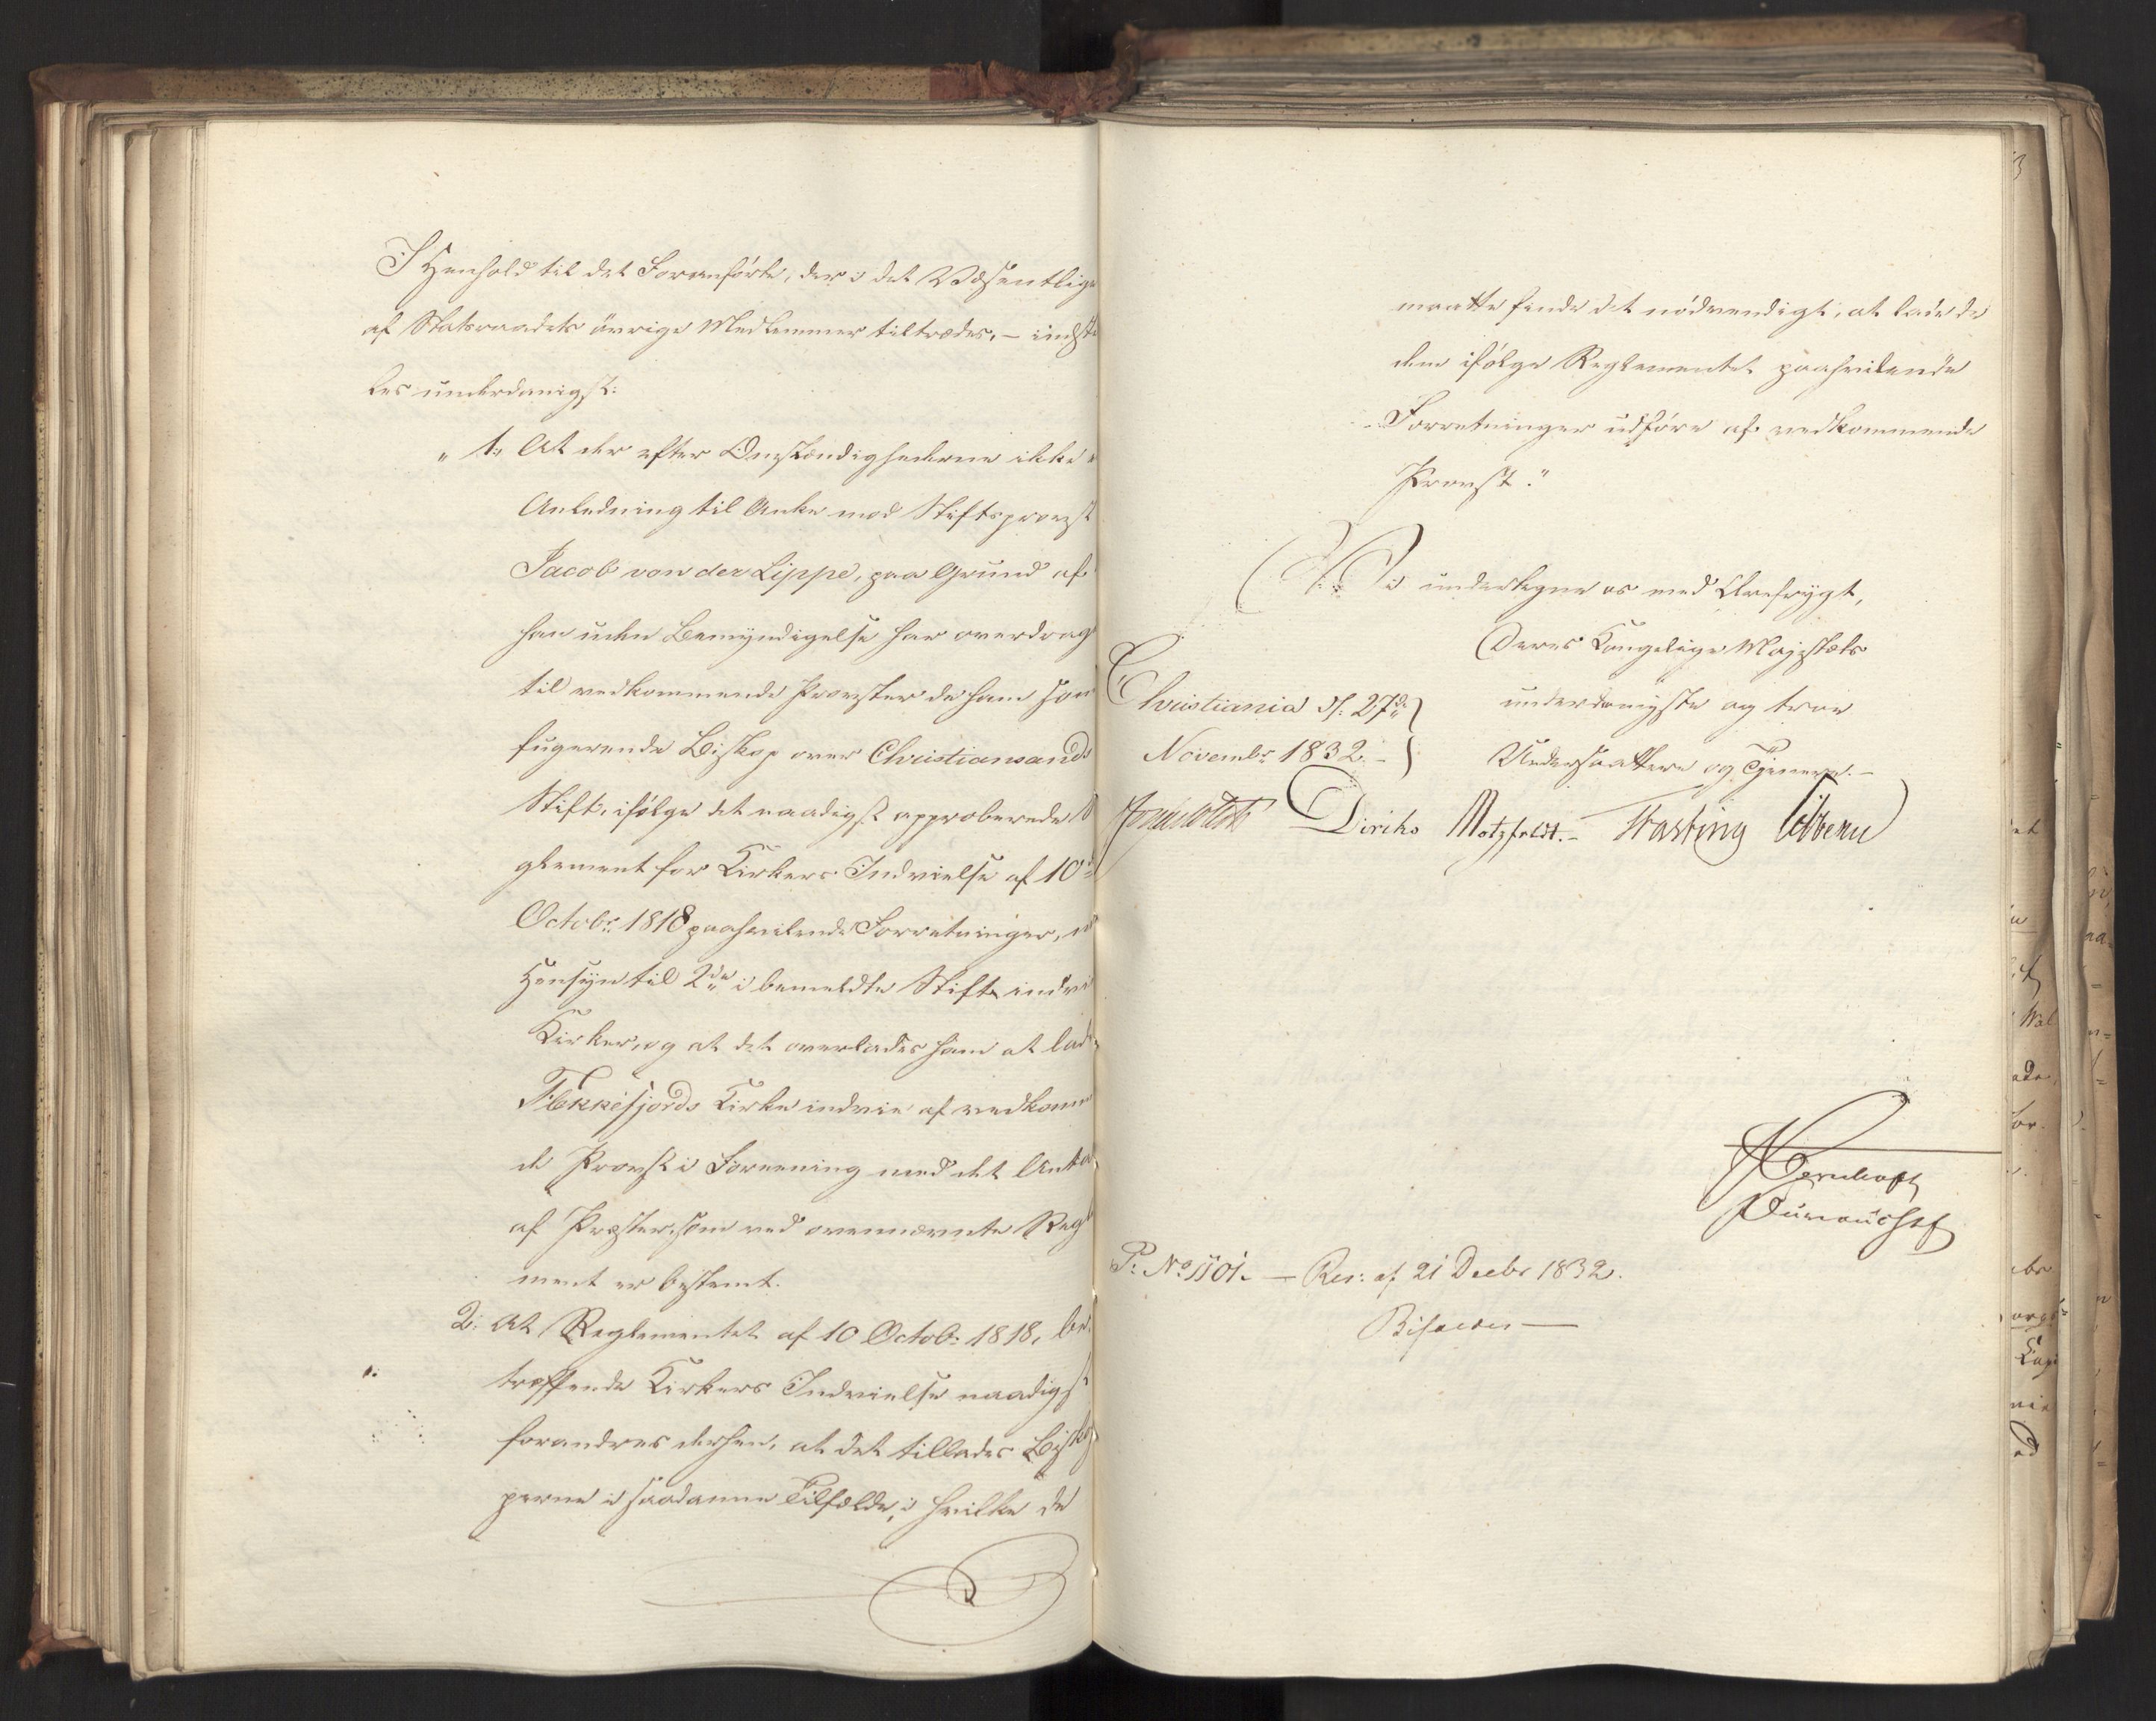 I Henhold til det Foranførte, der i det Væsentlige
af Statsraadets øvrige Medlemmer tiltrædes, – indstil
les underdanigst:
„ 1. At der efter Omstændighederne ikke er
Anledning til Anke mod Stiftsprovst
Jacob von der Lippe, paa Grund af
han uden Bemyndigelse har overdraget
til vedkommende Provster de ham som
fugerende Biskop over Christiansands
Stift, ifølge det naadigst approberede Re
glement for Kirkers Indvielse af 10de
Octobr: 1818 paahvilende Forretninger, m
Hensyn til 2de i bemeldte Stift indvi
Kirker, og at det overlades ham at lade
Flekkefjords Kirke indvie af vedkomm
de Provst i Forening med det Antal
af Præster, som ved ovennævnte Regl
ment er bestemt.
2: At Reglementet af 10 Octob: 1818, be-
træffende Kirkers Indvielse naadigst
forandres derhen, at det tillades Bisko
perne i saadanne Tilfælde, i hvilke de
maatte finde det nødvendigt, at lade de
dem ifølge Reglementet paahvilende
Forretninger udføre af vedkommende
Provst."
Vi undertegne os med Ærefrygt,
Deres Kongelige Majestæts
Christiania d. 27de
underdanigste og troe
Novembr 1832. –
Undersaatter og Tjenere. –
Diriks Motzfeldt. – Fasting Vibe
P: No 1101. – Res: af 21 Decbr 1832.
Bifaldes –